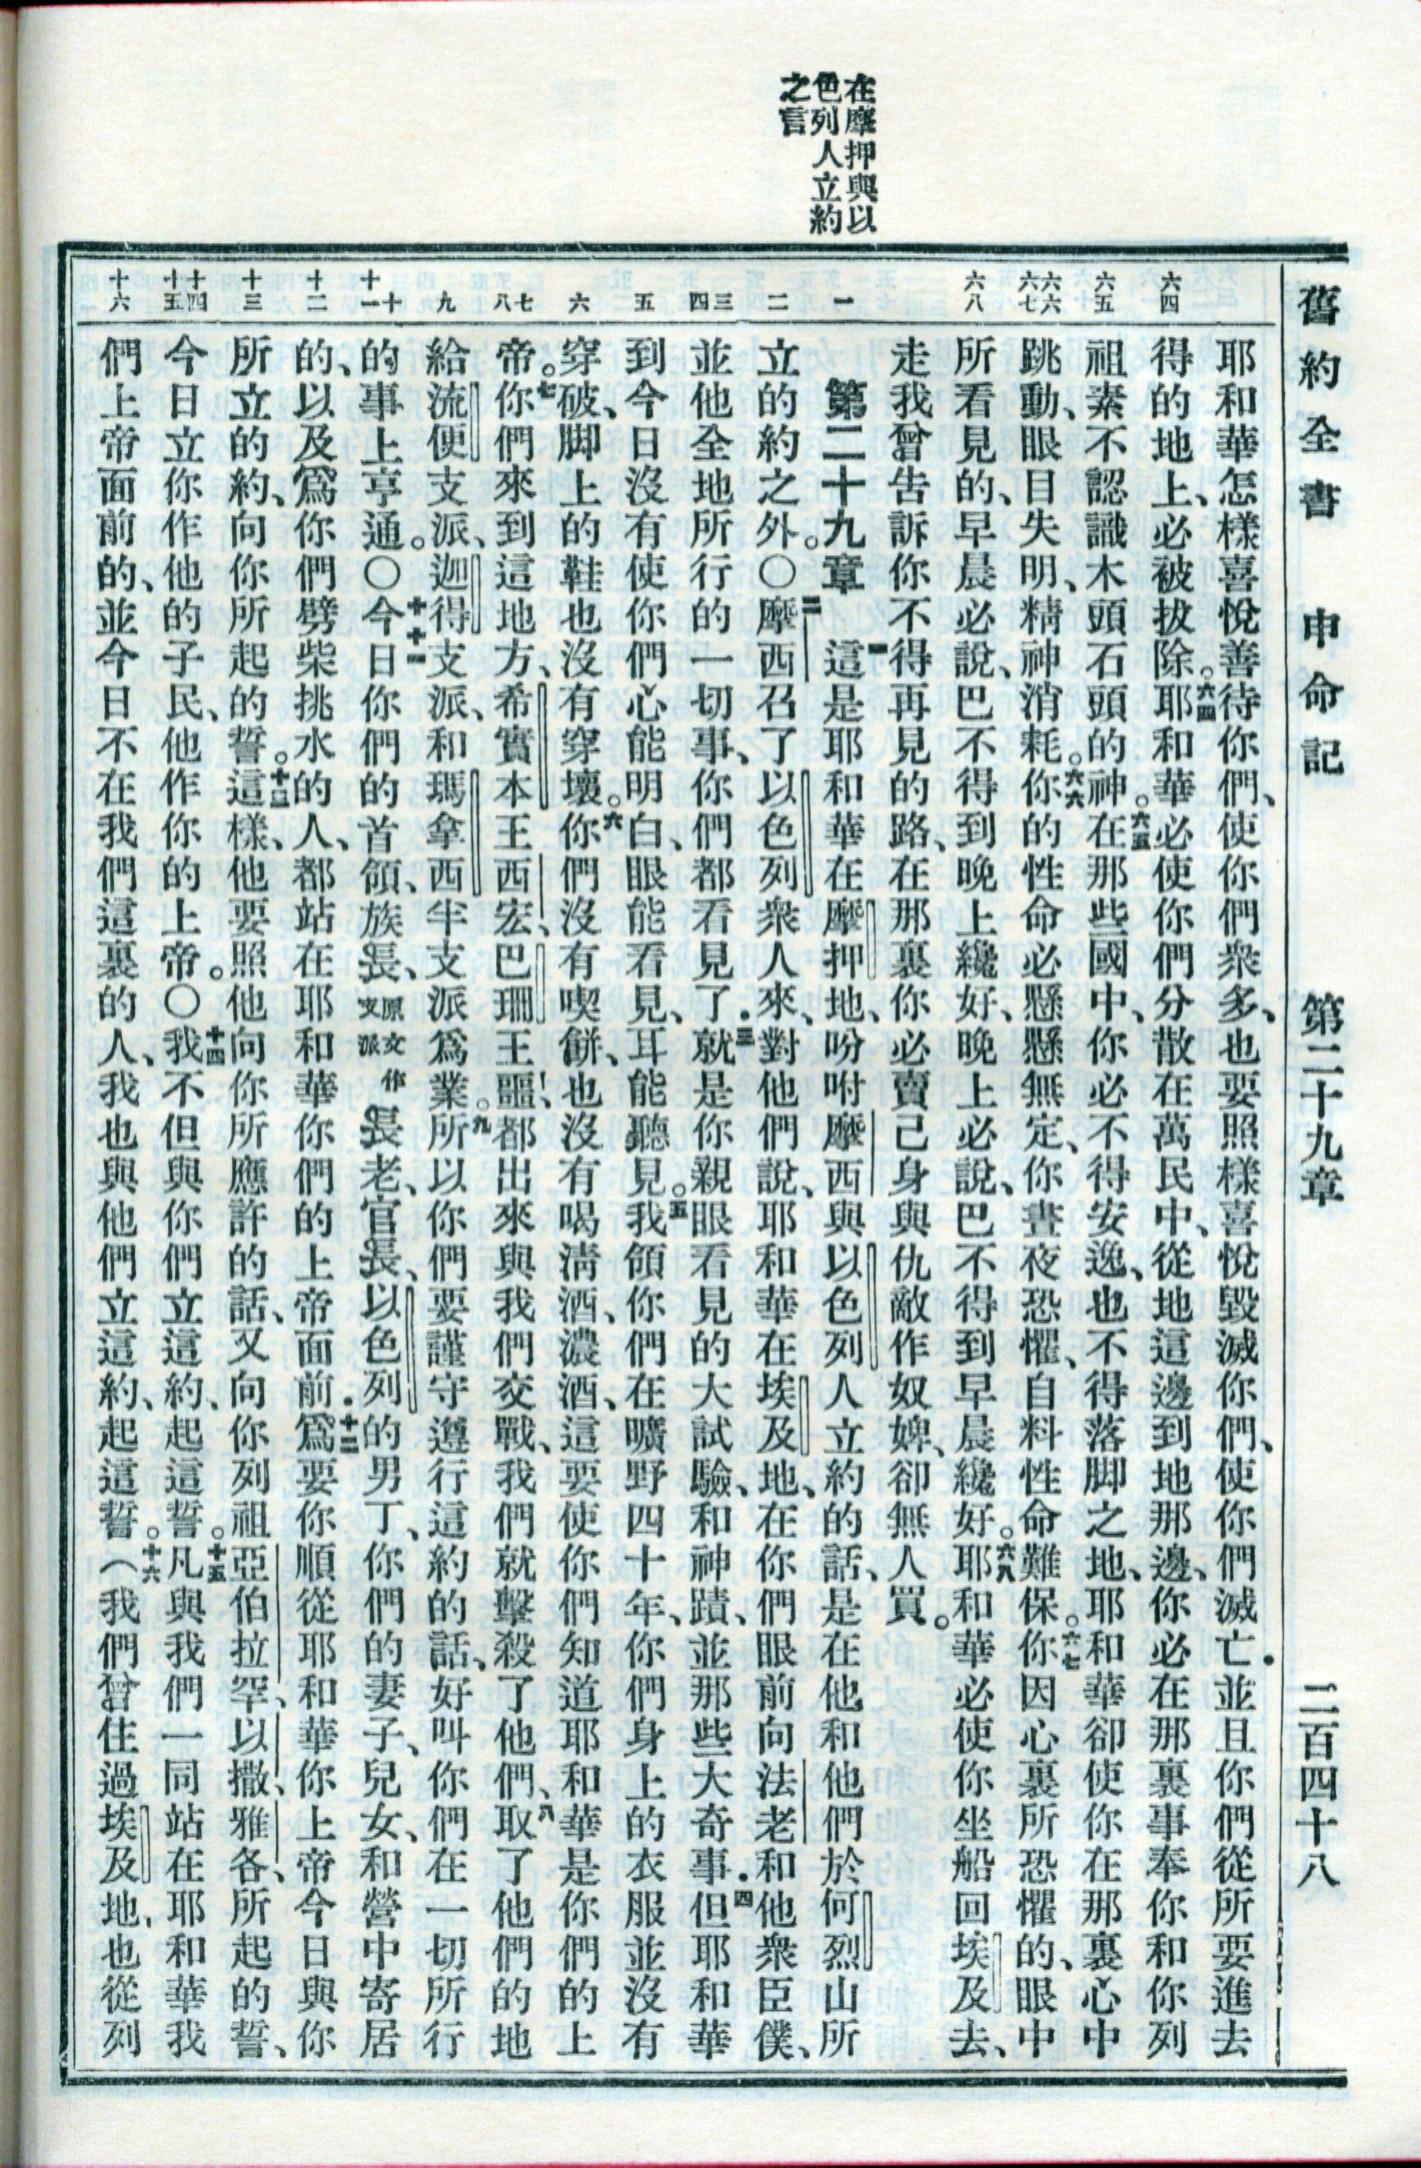 舊約全書　申命記　第二十九章　二百四十八
在摩押與以
色列人立約
之言
六四
六五
六六
六七
六八
一
二
三
四
五
六
七
八
九
十
十一
十二
十三
十四
十五
十六
耶和華怎樣喜悅善待你們、使你們衆多、也要照樣喜悅毀滅你們、使你們滅亡．並且你們從所要進去
得的地上、必被拔除。六四耶和華必使你們分散在萬民中、從地這邊到地那邊、你必在那裏事奉你和你列
祖素不認識木頭石頭的神。六五在那些國中、你必不得安逸、也不得落脚之地、耶和華卻使你在那裏心中
跳動、眼目失明、精神消耗。六六你的性命必懸懸無定、你晝夜恐懼、自料性命難保。六七你因心裏所恐懼的、眼中
所看見的、早晨必說、巴不得到晚上纔好、晚上必說、巴不得到早晨纔好。六八耶和華必使你坐船回埃及去、
走我曾告訴你不得再見的路、在那裏你必賣己身與仇敵作奴婢、卻無人買。
第二十九章　一這是耶和華在摩押地、吩咐摩西與以色列人立約的話、是在他和他們於何烈山所
立的約之外。〇二摩西召了以色列衆人來、對他們說、耶和華在埃及地、在你們眼前向法老和他衆臣僕、
並他全地所行的一切事、你們都看見了．三就是你親眼看見的大試驗、和神蹟、並那些大奇事．四但耶和華
到今日沒有使你們心能明白、眼能看見、耳能聽見。五我領你們在曠野四十年、你們身上的衣服並沒有
穿破、脚上的鞋也沒有穿壞。六你們沒有喫餅、也沒有喝淸酒、濃酒、這要使你們知道耶和華是你們的上
帝。七你們來到這地方、希實本王西宏、巴珊王噩、都出來與我們交戰、我們就擊殺了他們、八取了他們的地
給流便支派、迦得支派、和瑪拿西半支派爲業。九所以你們要謹守遵行這約的話、好叫你們在一切所行
的事上亨通。〇十十一今日你們的首領、族長、原文作支派長老、官長、以色列的男丁、你們的妻子、兒女、和營中寄居
的、以及爲你們劈柴挑水的人、都站在耶和華你們的上帝面前．十二爲要你順從耶和華你上帝今日與你
所立的約、向你所起的誓。十三這樣、他要照他向你所應許的話、又向你列祖亞伯拉罕、以撒、雅各、所起的誓、
今日立你作他的子民、他作你的上帝。〇十四我不但與你們立這約、起這誓。十五凡與我們一同站在耶和華我
們上帝面前的、並今日不在我們這裏的人、我也與他們立這約、起這誓。十六（我們曾住過埃及地、也從列